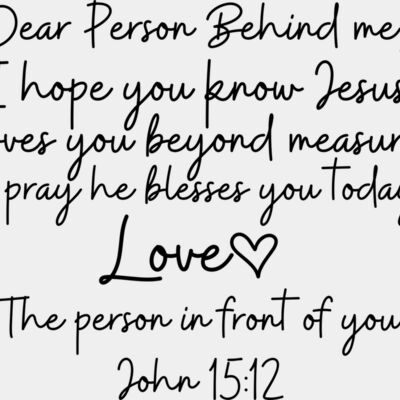 Dear Person Behind me,
I hope you know Jesus
loves you beyond measure
pray he blesses you today
Love♡
The person in front of you
John 15:12